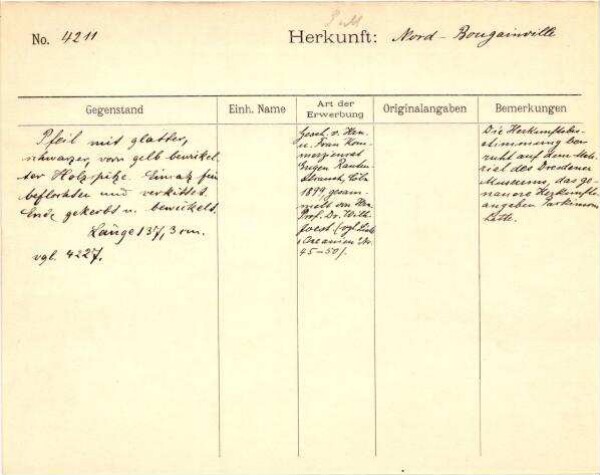 No. 4211
Herkunft: Nord-Bougainville
Gegenstand
Einh. Name
Art der Erwerbung
Originalangaben
Bemerkungen
Pfeil mit glatter,
schwarzer, vorn gelb bewickel-
ter Holzspitze. Einsatz fein
beflochten und verkittet.
Ende gekerbt u. bewickelt.
Länge 137,3 cm.
vgl. 4227.
Gesch. v. Herrn
u. Frau Kom-
merzienrat
Eugen Rauten-
strauch, Cöln
1899 gesam-
melt von Hrn.
Prof. Dr. Wilh.
Joest. (vgl. Liste
Oceanien No.
45-50).
Die Herkunftsbe-
stimmung be-
ruht auf dem Mate-
rial des Dresdener
Museums, das ge-
nauere Herkunfts-
angaben Parkinsons